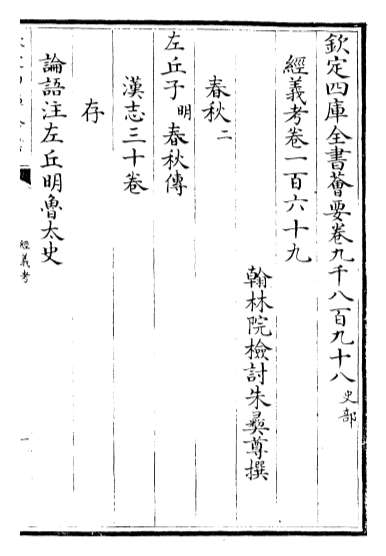 欽定四庫全書薈要卷九千八百九十八 史部
經義考卷一百六十九
翰林院檢討朱彝尊撰
春秋 二
左丘子 明 春秋傳
漢志三十卷
存
論語注左丘明魯太史
經義考
一